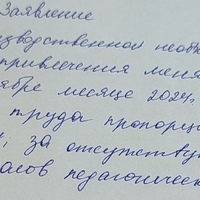 Заявление
изводственной необх
привлечения меня
ябре месяце 2024г.
труда пропорци
, за отсутствую
алов педагогическ